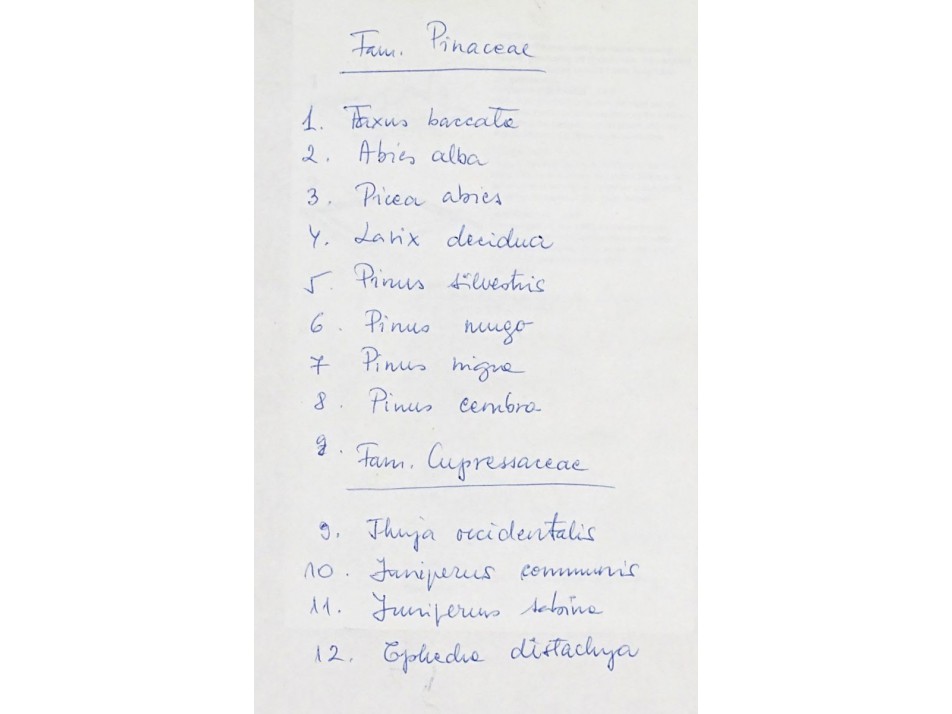 Fam. Pinaceae
1. Taxus baccata
2. Abies alba
3. Picea abies
4. Larix decidua
5. Pinus silvestris
6. Pinus mugo
7 Pinus nigra
8. Pinus cembra
9. Fam. Cupressaceae
9. Thuja occidentalis
10. Juniperus communis
11. Juniperus sabina
12. Ephedra distachya